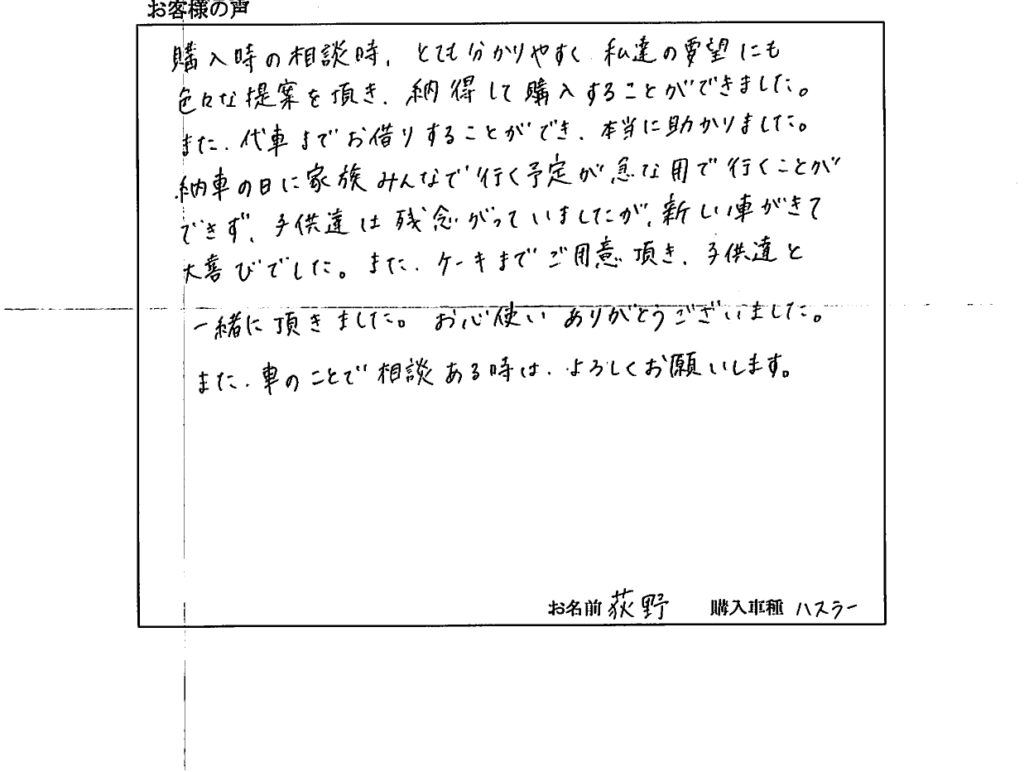 お客様の声
購入時の相談時、とても分かりやすく私達の要望にも
色々な提案を頂き、納得して購入することができました。
また、代車までお借りすることができ、本当に助かりました。
納車の日に家族みんなで行く予定が急な用で行くことが
できず、子供達は残念がっていましたが、新しい車がきて
大喜びでした。また、ケーキまでご用意頂き、子供達と
一緒に頂きました。お心使いありがとうございました。
また、車のことで相談ある時は、よろしくお願いします。
お名前 荻野 購入車種 ハスラー